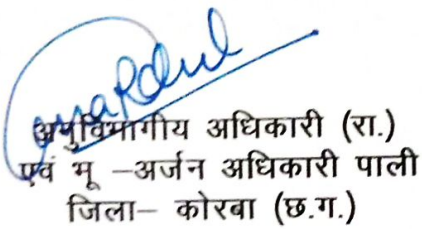 अनुविभागीय अधिकारी (रा.)
एवं भू –अर्जन अधिकारी पाली
जिला– कोरबा (छ.ग.)